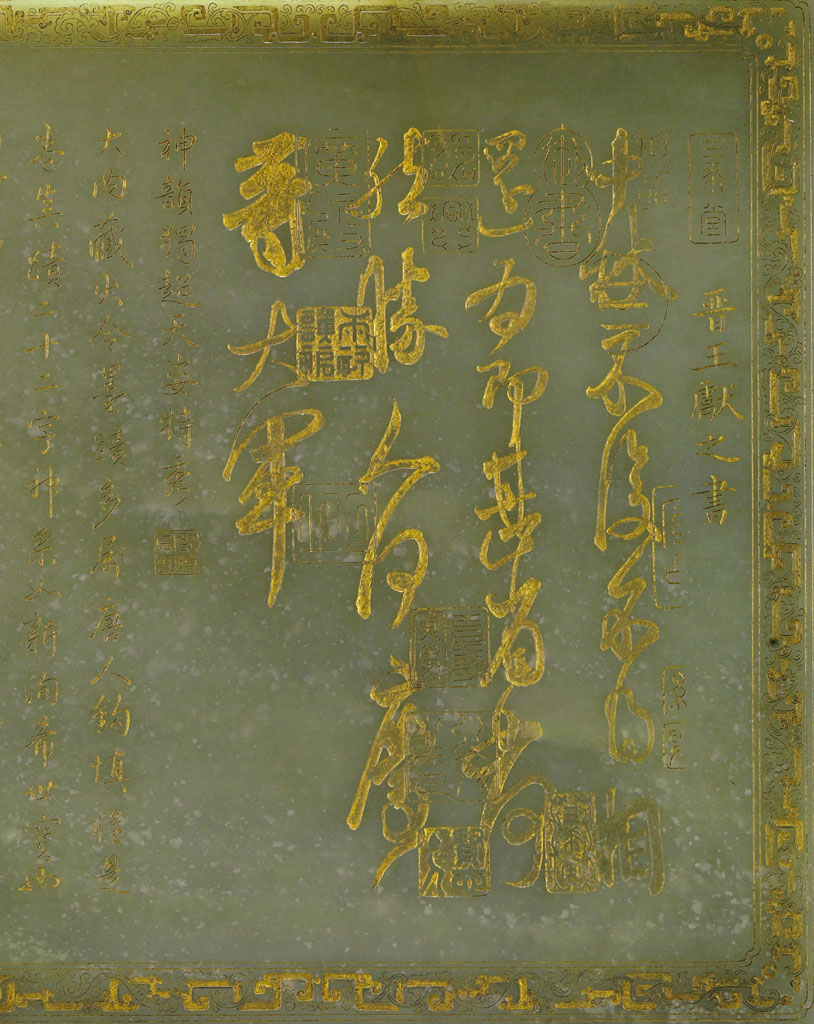 三希堂
晋王獻之書
中秋不復不得相
還為即甚省如何
然勝人何慶
等大軍
神韻獨超天姿特秀
大内藏大令墨蹟多屬唐人鉤填惟是
卷真蹟二十二字神采如新洵希世寶也